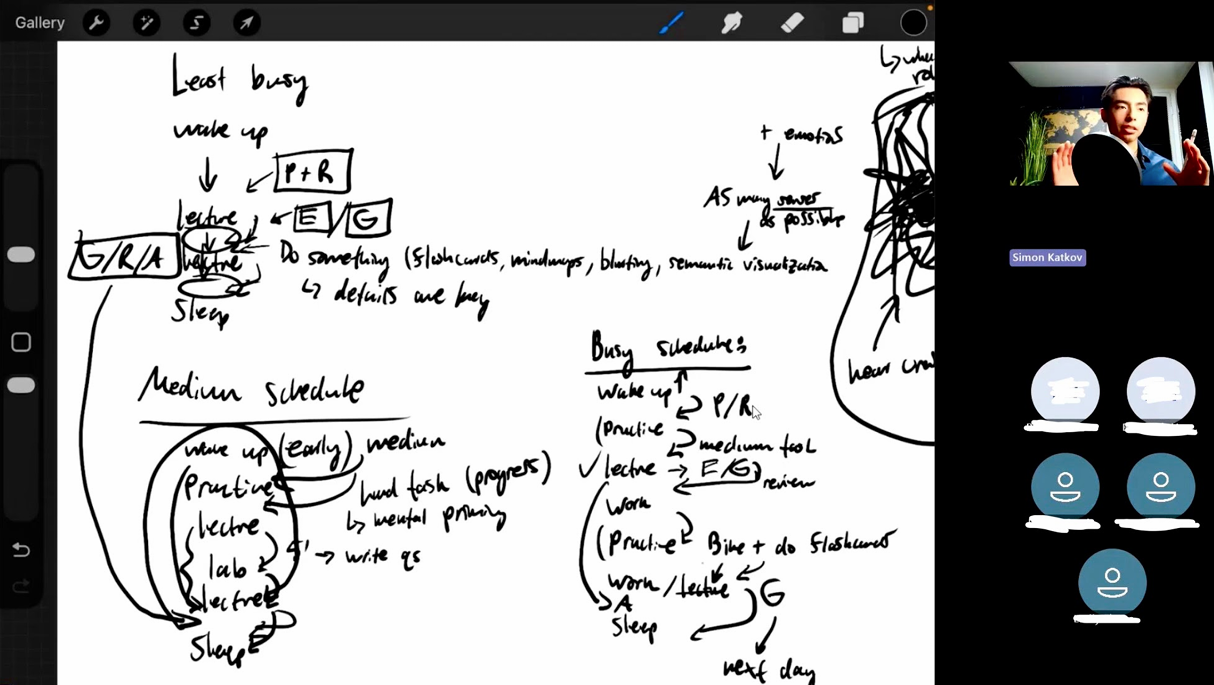 Gallery
Least busy
wake up
P + R
lecture
E / G
G/R/A
lecture
Do something (flashcards, mindmaps, blurting, semantic visualization
↳ details are key
Sleep
+ emotions
As many senses
as possible
Medium schedule
wake up (early) medium
Practice
hard task (progress)
↳ mental priming
lecture
5' → write qs
lab
lecture
Sleep
Busy schedule:
wake up
P/R
(Practice
medium task
✓ lecture → E/G)
review
work
(Practice
Bike + do flashcards
work / lecture
G
A
Sleep
next day
hear
Simon Katkov